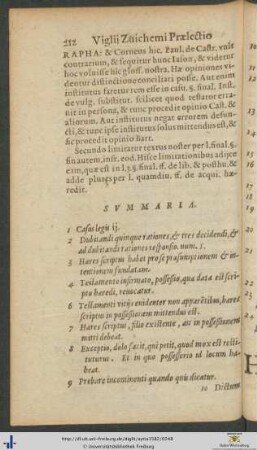 212 Viglij Zuichemi Prælectio
RAPHA: & Corneus hic. Paul. de Castr. vult
contrarium, & sequitur hunc Iason, & videtur
hoc voluisse hic gloss. nostra. Hæ opiniones vi-
dentur distinctione conciliari posse. Aut enim
institutus satetur rem esse in casu §. final. Inst.
de vulg. substitut. scilicet quod testator erra-
uit in persona, & tunc procedit opinio Cast. &
aliorum. Aut institutus negat errorem defun-
cti, & tunc ipse institutus solus mittendus est, &
sic procedit opinio
Secundo limitatur textus noster per l. final. §.
sin autem, inst. eod. Hisce limitationibus adijce
eam, quæ est in l. 3. §. final. ff. de lib. & posthu, &
adde plures per l. quamdiu. ff. de acqui. hæ-
redit.
SVMMARIA.
1 Casus legis ij.
2 Dubitandi quinque rationes, & tres decidendi, &
ad dubitandi rationes responsio. num. 5.
3 Hæres scriptus habet pro se præsumptionem & in-
tentionem fundatam.
4 Testamento infirmato, possessio, qua data est scri-
pto hæredi, reuocatur.
6 Testamenti vitijs euidenter non apparẽtibus, hæres
scriptus in possessionem mittendus est.
7 Hæres scriptus, filio existente, an in possessionem
mitti debeat.
8 Exceptio, dolo facit, qui petit, quod mox est resti-
tuturus. Et in quo possessorio id locum ha-
beat.
9 Probare incontinenti quando quis dicatur.
10 Dictum
http://dl.ub.uni-freiburg.de/diglit/
© Universitätsbibliothek Freiburg